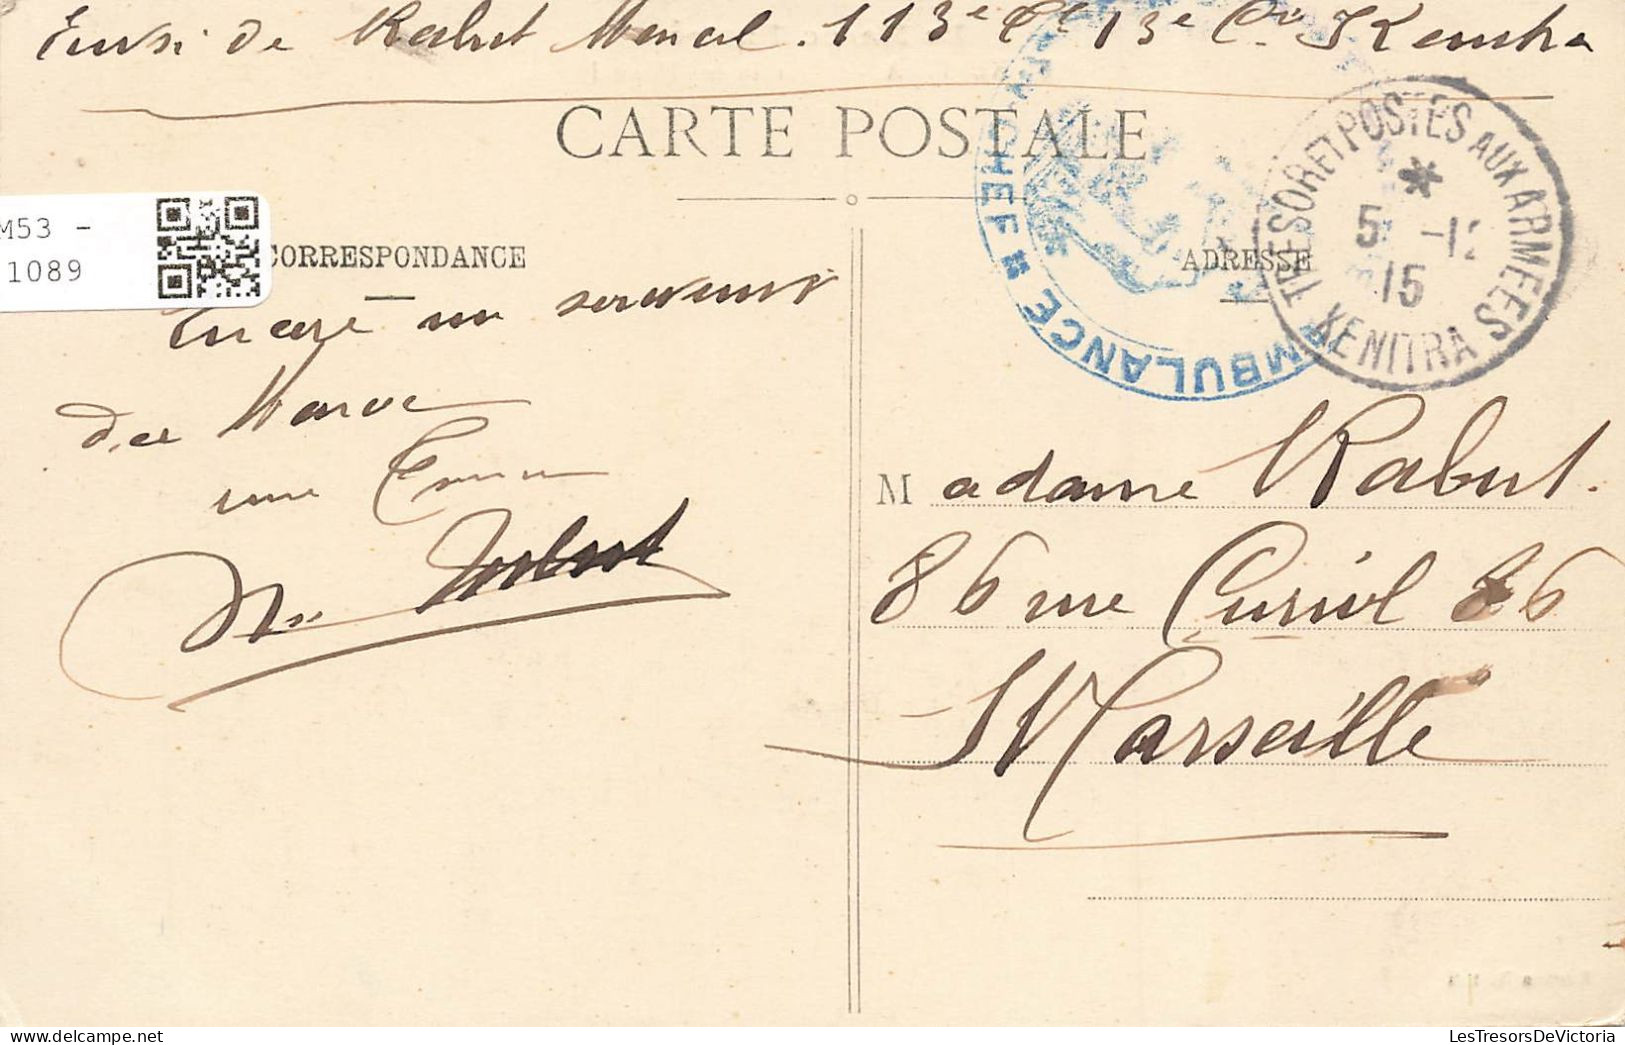 Envoi de Rabut Marcel. 113e 13e Cie Kenitra
CARTE POSTALE
M53 -
1089
CORRESPONDANCE
ADRESSE
TRESOR ET POSTES AUX ARMEES
*
5 -12
15
KENITRA
AMBULANCE
CHEF
Encore un souvenir
du Maroc
Rabut
Madame Rabut.
86 rue Curiol 86
Marseille
LesTresorsDeVictoria